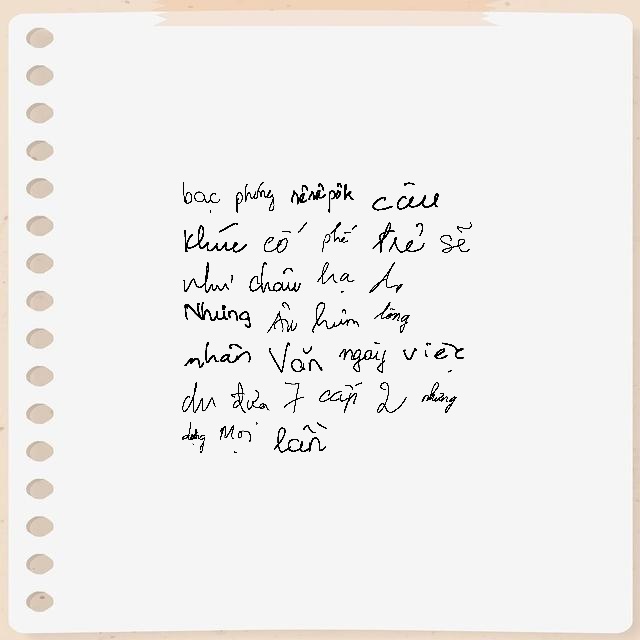 bạc phóng sêrêpôk câu
khúc cố phế trẻ sẽ
như châu hạ
Nhưng Âu hùm tông
nhân Văn ngày việc
du đưa 7 cấp 2 nhưng
dựng Mọi lần